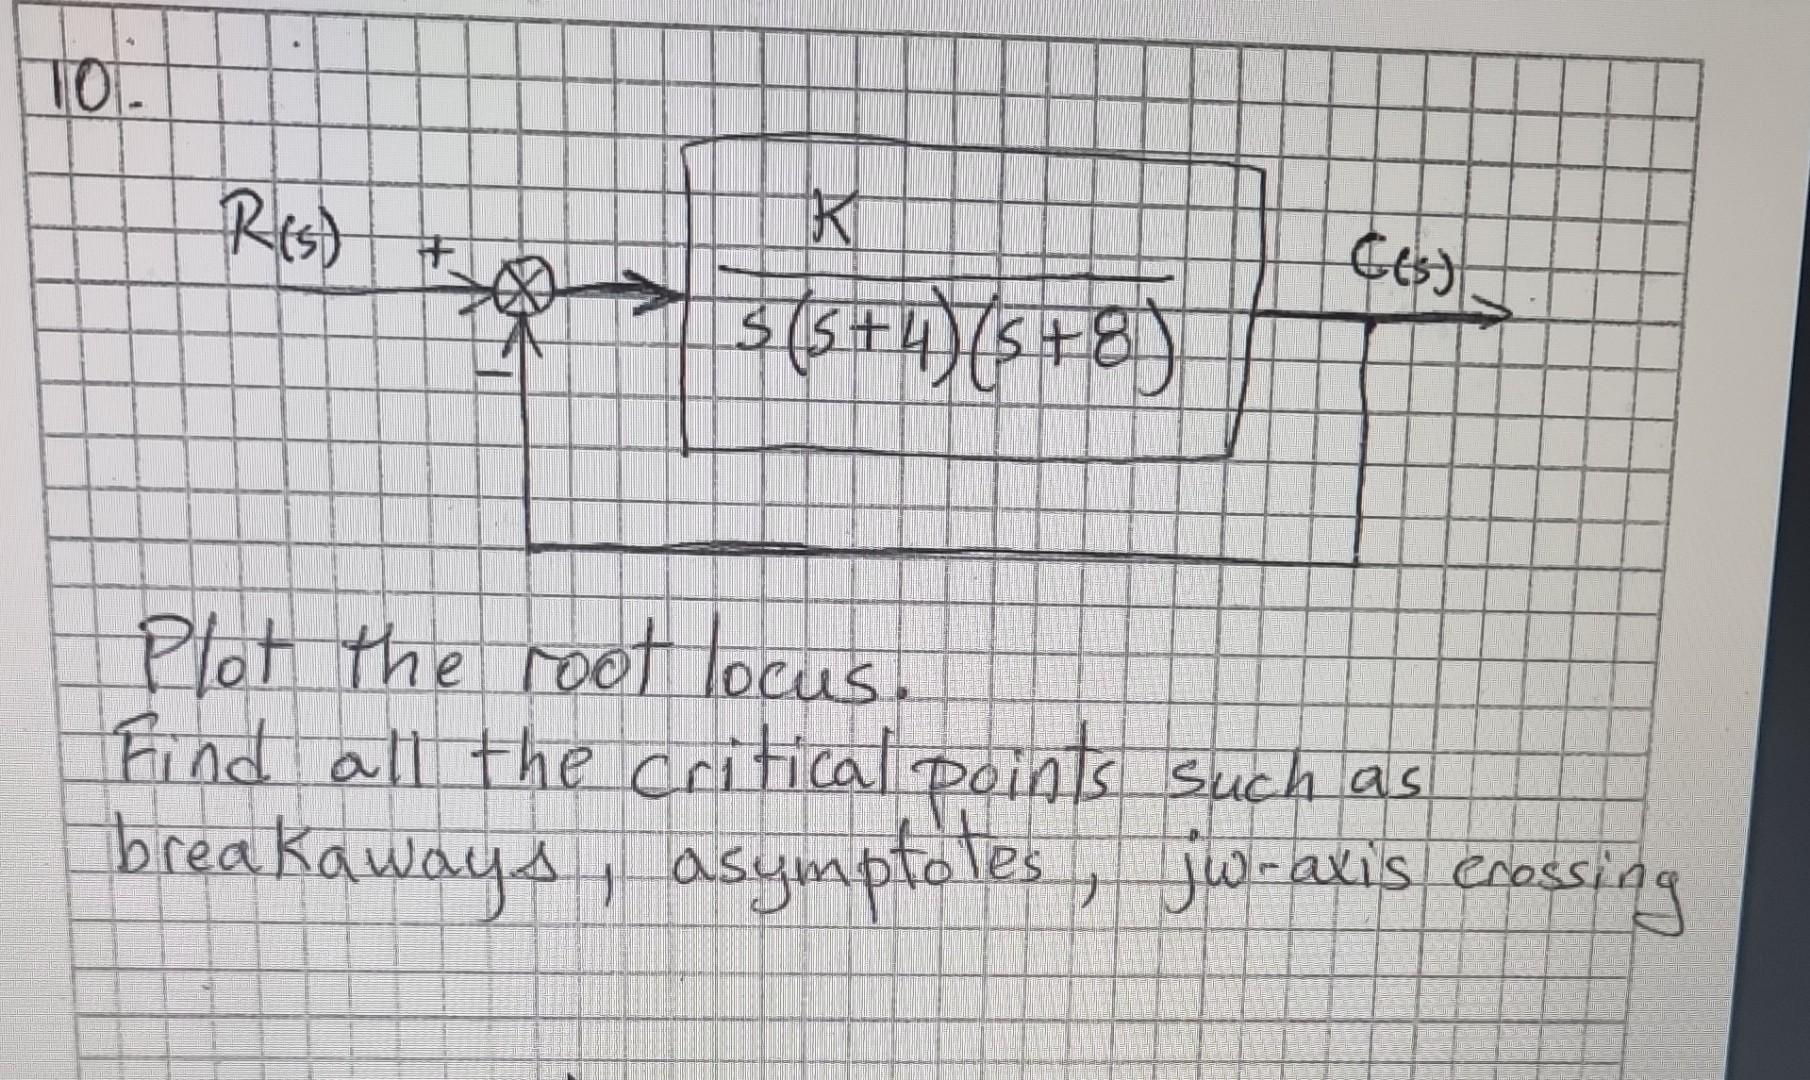 10.
R(s) + K C(s)
s(s+4)(s+8)
-
Plot the root locus.
Find all the critical points such as
breakaways, asymptotes, jw-axis crossing